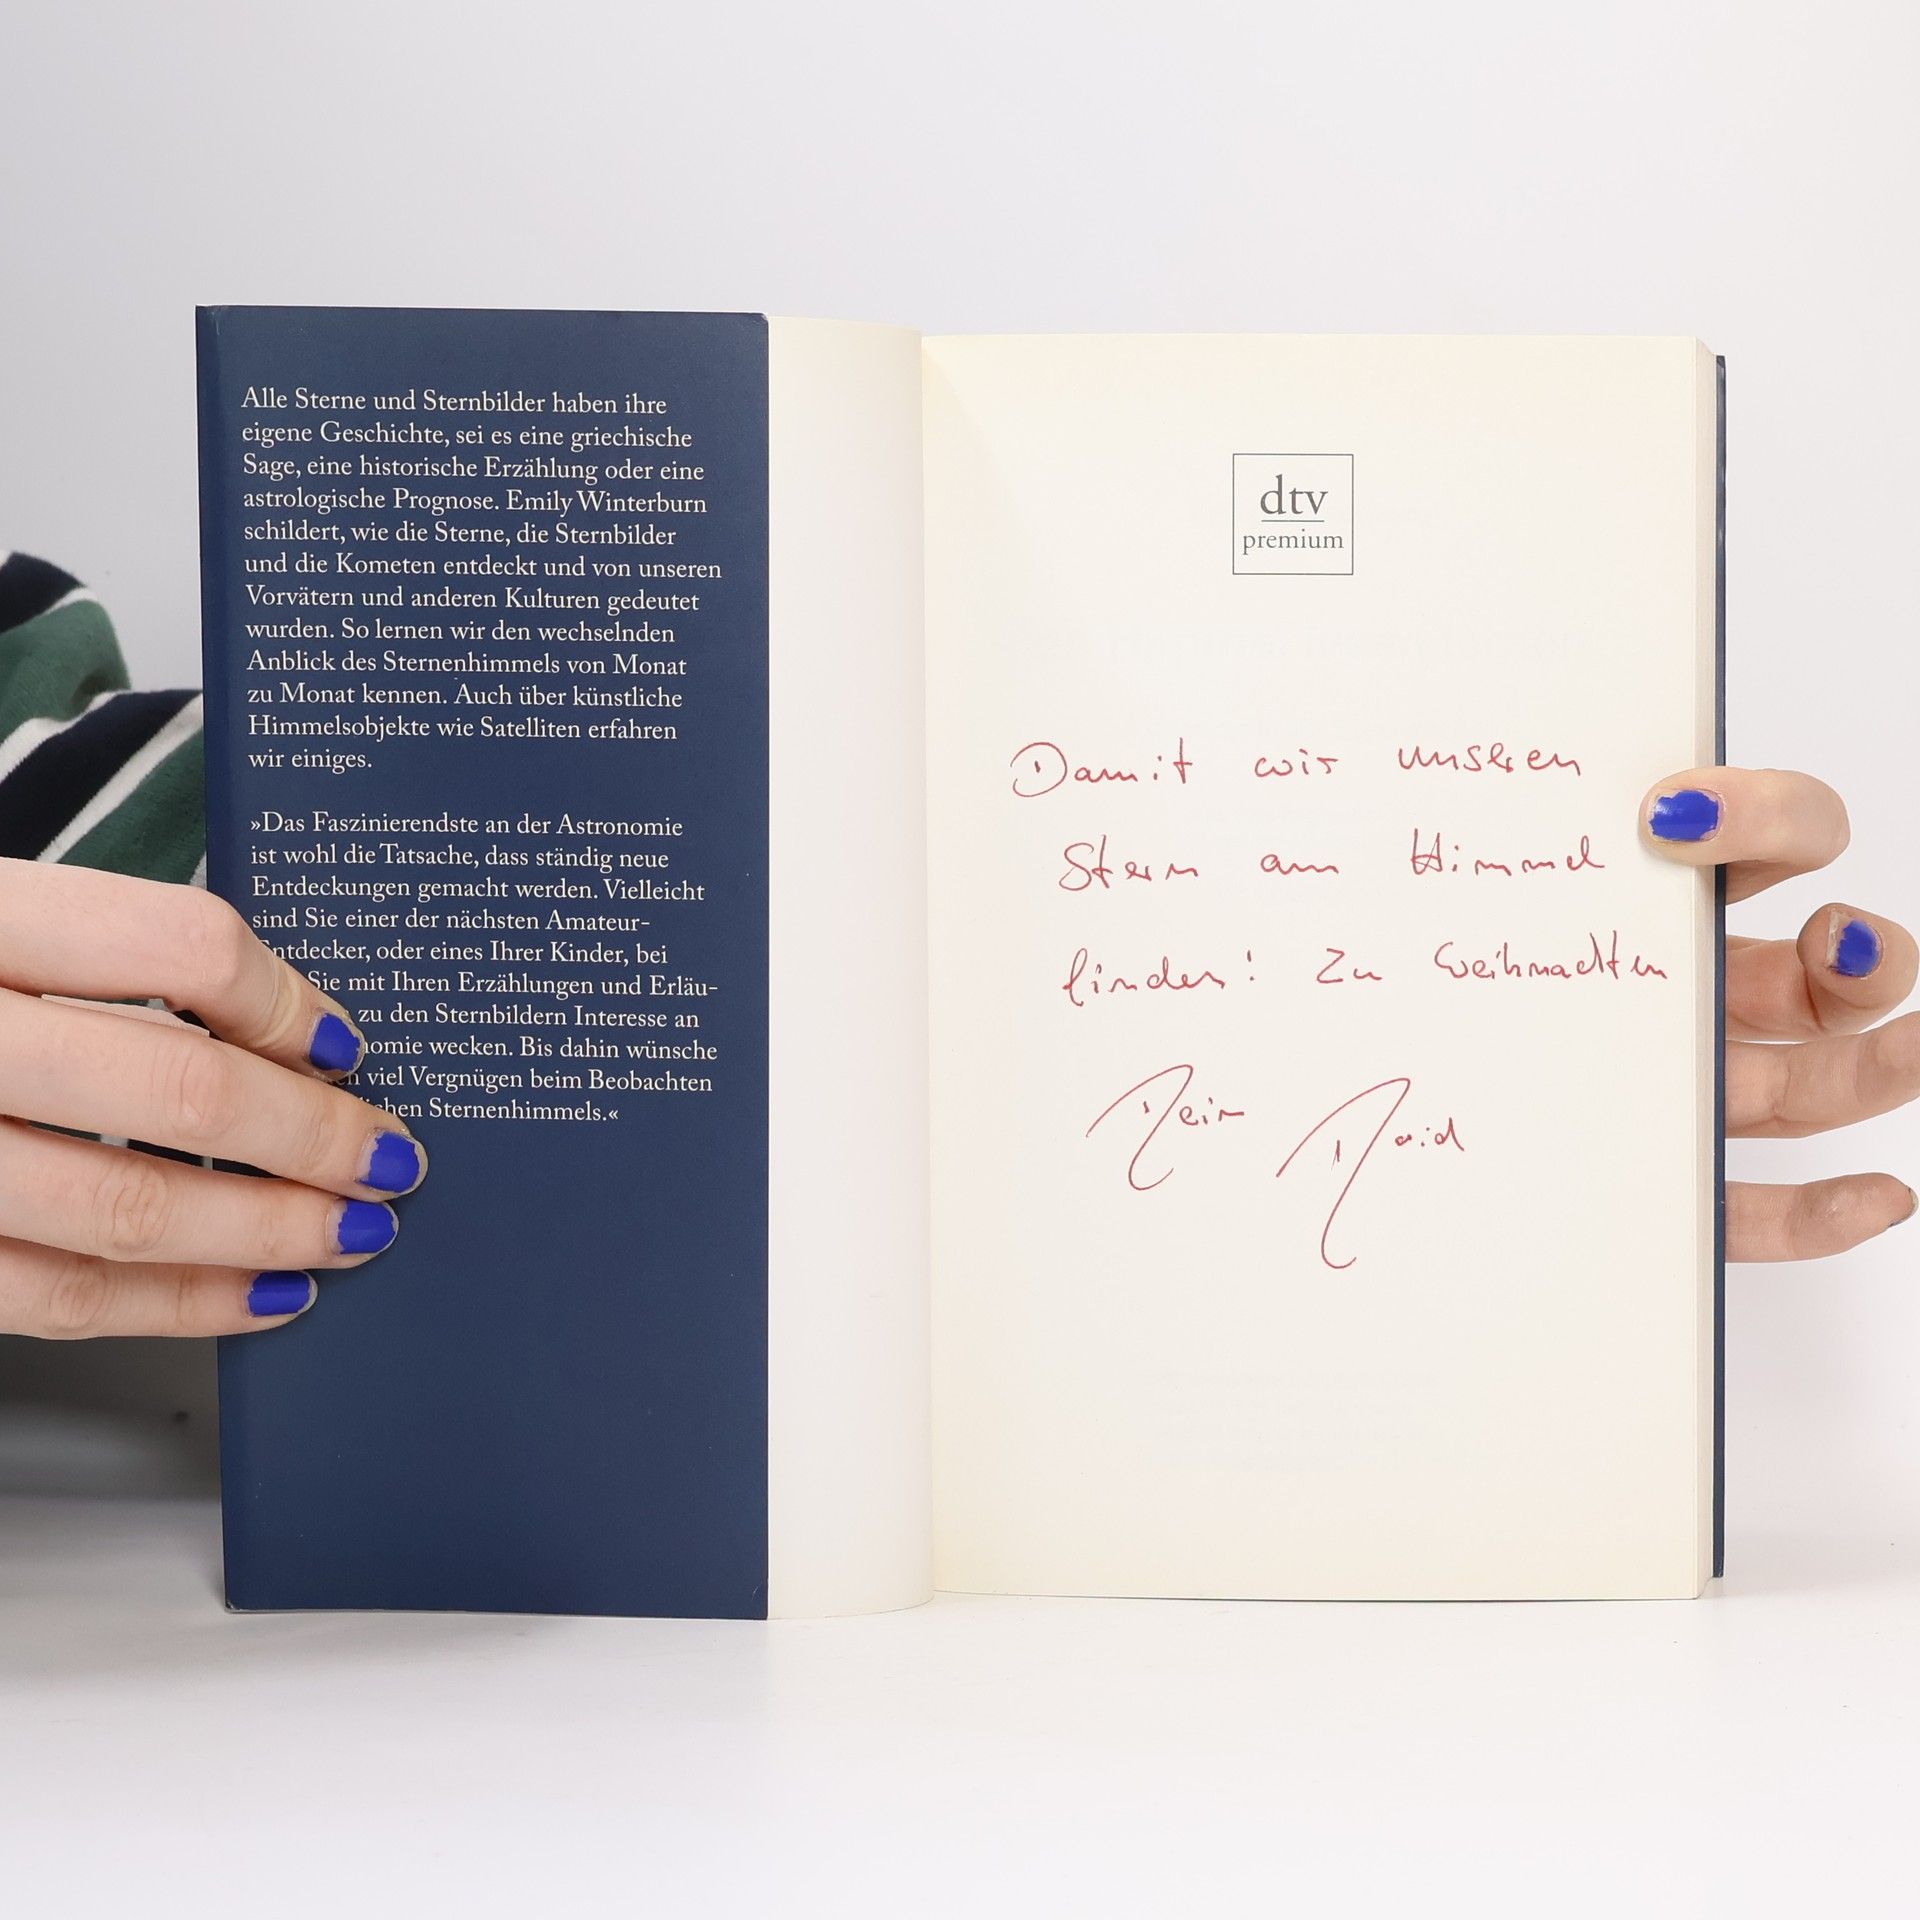 Alle Sterne und Sternbilder haben ihre
eigene Geschichte, sei es eine griechische
Sage, eine historische Erzählung oder eine
astrologische Prognose. Emily Winterburn
schildert, wie die Sterne, die Sternbilder
und die Kometen entdeckt und von unseren
Vorvätern und anderen Kulturen gedeutet
wurden. So lernen wir den wechselnden
Anblick des Sternenhimmels von Monat
zu Monat kennen. Auch über künstliche
Himmelsobjekte wie Satelliten erfahren
wir einiges.
»Das Faszinierendste an der Astronomie
ist wohl die Tatsache, dass ständig neue
Entdeckungen gemacht werden. Vielleicht
sind Sie einer der nächsten Amateur-
Entdecker, oder eines Ihrer Kinder, bei
Sie mit Ihren Erzählungen und Erläu-
zu den Sternbildern Interesse an
wecken. Bis dahin wünsche
viel Vergnügen beim Beobachten
Sternenhimmels.«
dtv
premium
Damit wir unseren
Stern am Himmel
finden! Zu Weihnachten
Dein David